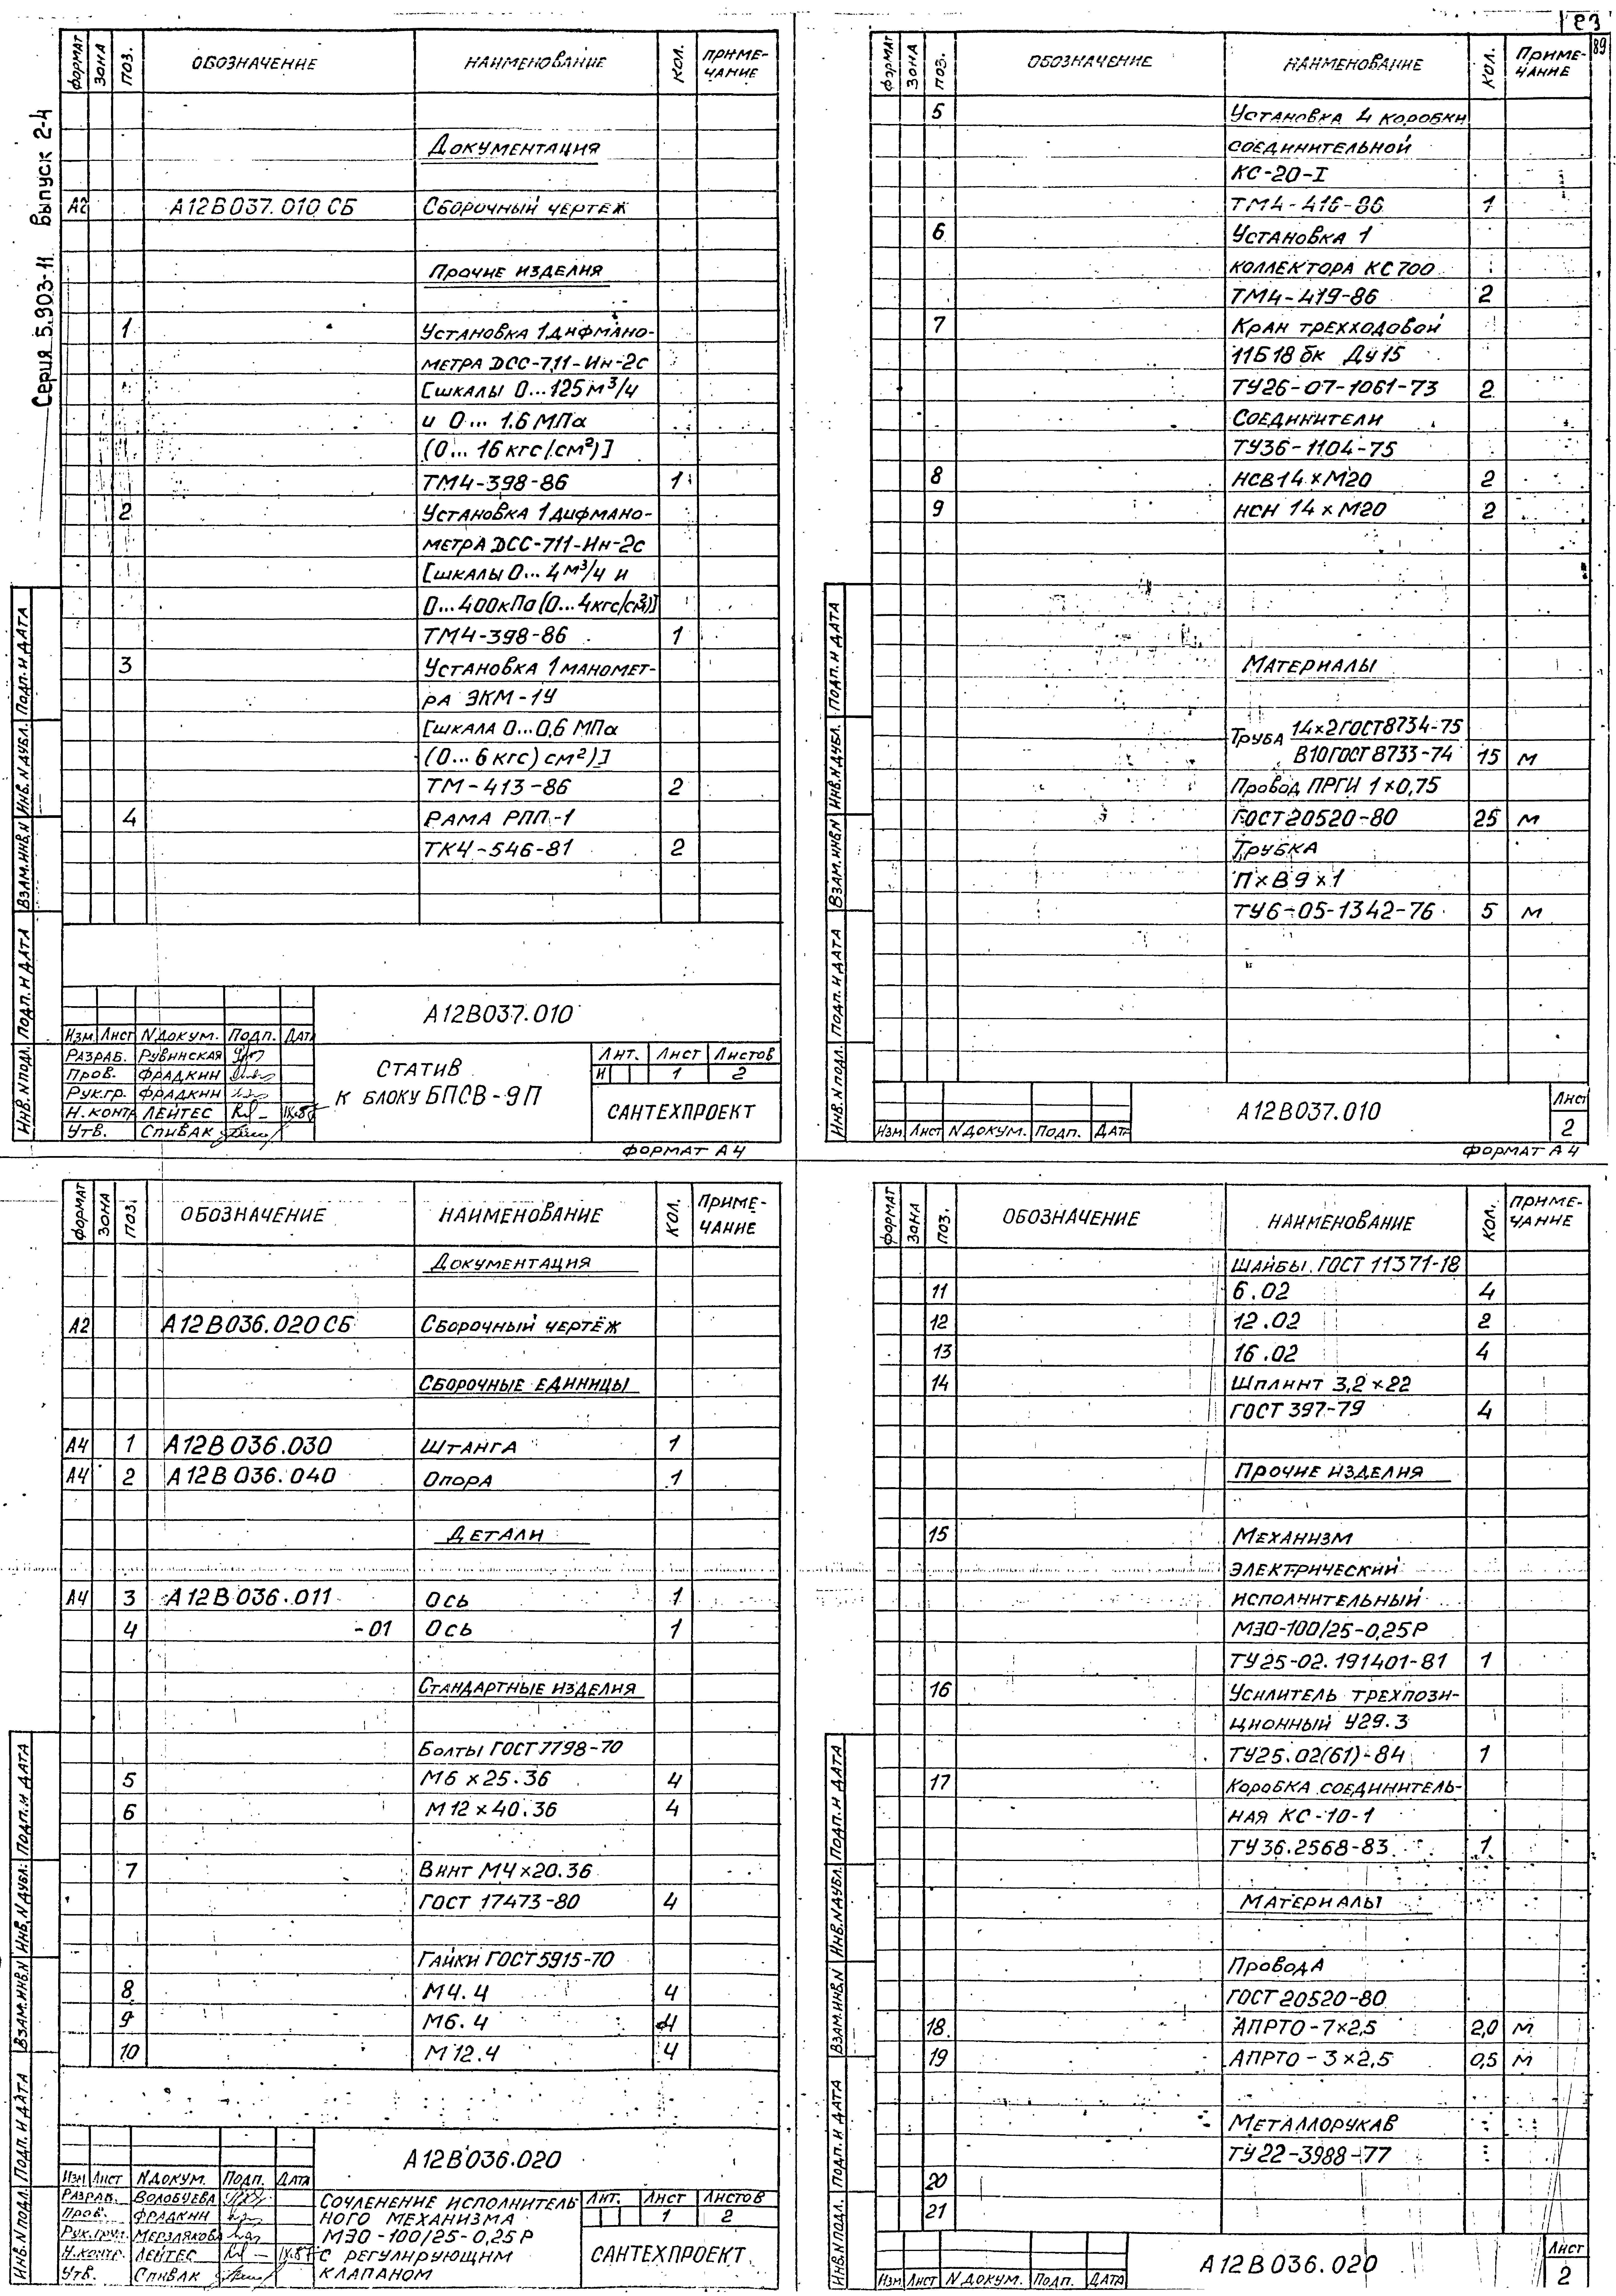 Серия 5.903-11 Выпуск 2-4
ФОРМАТ ЗОНА ПОЗ. ОБОЗНАЧЕНИЕ НАИМЕНОВАНИЕ КОЛ. ПРИМЕ-
ЧАНИЕ
ДОКУМЕНТАЦИЯ
А2 А12В037.010 СБ СБОРОЧНЫЙ ЧЕРТЕЖ
ПРОЧИЕ ИЗДЕЛИЯ
1 УСТАНОВКА 1 ДИФМАНО-
МЕТРА ДСС-711-Ин-2с
[ШКАЛЫ 0...125 м³/ч
и 0... 1.6 МПа
(0... 16 кгс/см²)]
ТМ4-398-86 1
2 УСТАНОВКА 1 ДИФМАНО-
МЕТРА ДСС-711-Ин-2с
[ШКАЛЫ 0... 4 м³/ч и
0...400кПа (0...4кгс/см²)]
ТМ4-398-86 1
3 УСТАНОВКА 1 МАНОМЕТ-
РА ЭКМ-1У
[ШКАЛА 0...0,6 МПа
(0...6 кгс) см²)]
ТМ-413-86 2
4 РАМА РПП-1
ТК4-546-81 2
ИНВ.N ПОДЛ. ПОДП. И ДАТА ВЗАМ.ИНВ.N ИНВ.N ДУБЛ. ПОДП. И ДАТА
А12В037.010
ИЗМ. ЛИСТ N ДОКУМ. ПОДП. ДАТА
РАЗРАБ. РУВИНСКАЯ
ПРОВ. ФРАДКИН
РУК.ГР. ФРАДКИН
Н.КОНТР ЛЕЙТЕС
УТВ. СПИВАК
СТАТИВ
К БЛОКУ БПСВ-9П
ЛИТ. ЛИСТ ЛИСТОВ
И 1 2
САНТЕХПРОЕКТ
ФОРМАТ А4
23
89
ФОРМАТ ЗОНА ПОЗ. ОБОЗНАЧЕНИЕ НАИМЕНОВАНИЕ КОЛ. ПРИМЕ-
ЧАНИЕ
5 УСТАНОВКА 4 КОРОБКИ
СОЕДИНИТЕЛЬНОЙ
КС-20-I
ТМ4-416-86 1
6 УСТАНОВКА 1
КОЛЛЕКТОРА КС 700
ТМ4-419-86 2
7 КРАН ТРЕХХОДОВОЙ
11Б18 бк Ду 15
ТУ26-07-1061-73 2
СОЕДИНИТЕЛИ
ТУ36-1104-75
8 НСВ 14 х М20 2
9 НСН 14 х М20 2
МАТЕРИАЛЫ
ТРУБА 14х2 ГОСТ 8734-75
В10 ГОСТ 8733-74 15 м
ПРОВОД ПРГИ 1 х 0,75
ГОСТ 20520-80 25 м
ТРУБКА
П х В 9 х 1
ТУ6-05-1342-76 5 м
ИНВ.N ПОДЛ. ПОДП. И ДАТА ВЗАМ.ИНВ.N ИНВ.N ДУБЛ. ПОДП. И ДАТА
ИЗМ. ЛИСТ N ДОКУМ. ПОДП. ДАТА
А12В037.010
ЛИСТ
2
ФОРМАТ А4
ФОРМАТ ЗОНА ПОЗ. ОБОЗНАЧЕНИЕ НАИМЕНОВАНИЕ КОЛ. ПРИМЕ-
ЧАНИЕ
ДОКУМЕНТАЦИЯ
А2 А12В036.020 СБ СБОРОЧНЫЙ ЧЕРТЁЖ
СБОРОЧНЫЕ ЕДИНИЦЫ
А4 1 А12В036.030 ШТАНГА 1
А4 2 А12В036.040 ОПОРА 1
ДЕТАЛИ
А4 3 А12В036.011 ОСЬ 1
4 -01 ОСЬ 1
СТАНДАРТНЫЕ ИЗДЕЛИЯ
БОЛТЫ ГОСТ 7798-70
5 М6 х 25.36 4
6 М12 х 40.36 4
7 ВИНТ М4 х 20.36
ГОСТ 17473-80 4
ГАЙКИ ГОСТ 5915-70
8 М4.4 4
9 М6.4 4
10 М12.4 4
ИНВ.N ПОДЛ. ПОДП. И ДАТА ВЗАМ.ИНВ.N ИНВ.N ДУБЛ. ПОДП. И ДАТА
А12В036.020
ИЗМ ЛИСТ N ДОКУМ. ПОДП. ДАТА
РАЗРАБ. ВОЛОБУЕВА
ПРОВ. ФРАДКИН
РУК.ГРУП. МЕРЗЛЯКОВА
Н.КОНТР. ЛЕЙТЕС
УТВ. СПИВАК
СОЧЛЕНЕНИЕ ИСПОЛНИТЕЛЬ
НОГО МЕХАНИЗМА
МЭО-100/25-0,25Р
С РЕГУЛИРУЮЩИМ
КЛАПАНОМ
ЛИТ. ЛИСТ ЛИСТОВ
1 2
САНТЕХПРОЕКТ
ФОРМАТ ЗОНА ПОЗ. ОБОЗНАЧЕНИЕ НАИМЕНОВАНИЕ КОЛ. ПРИМЕ-
ЧАНИЕ
ШАЙБЫ ГОСТ 11371-18
11 6.02 4
12 12.02 2
13 16.02 4
14 ШПЛИНТ 3,2 х 22
ГОСТ 397-79 4
ПРОЧИЕ ИЗДЕЛИЯ
15 МЕХАНИЗМ
ЭЛЕКТРИЧЕСКИЙ
ИСПОЛНИТЕЛЬНЫЙ
МЭО-100/25-0,25Р
ТУ25-02.191401-81 1
16 УСИЛИТЕЛЬ ТРЕХПОЗИ-
ЦИОННЫЙ У29.3
ТУ25.02(61)-84 1
17 КОРОБКА СОЕДИНИТЕЛЬ-
НАЯ КС-10-1
ТУ36.2568-83 1
МАТЕРИАЛЫ
ПРОВОДА
ГОСТ 20520-80
18 АПРТО-7х2,5 2,0 м
19 АПРТО-3х2,5 0,5 м
МЕТАЛЛОРУКАВ
ТУ22-3988-77
20
21
ИНВ.N ПОДЛ. ПОДП. И ДАТА ВЗАМ.ИНВ.N ИНВ.N ДУБЛ. ПОДП. И ДАТА
ИЗМ. ЛИСТ N ДОКУМ. ПОДП. ДАТА
А12В036.020
ЛИСТ
2